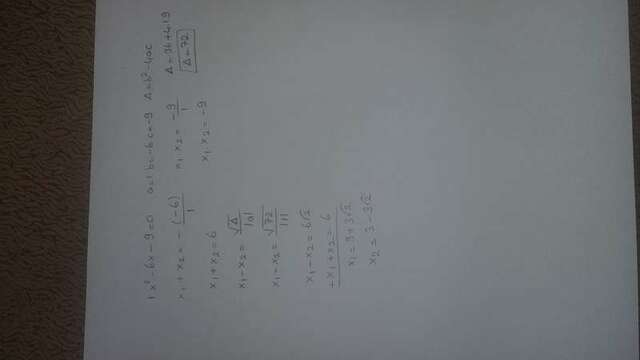 1x²-6x-9=0 a=1 b=-6 c=-9 Δ=b²-4ac
x₁+x₂= -(-6)/1 x₁x₂= -9/1 Δ=36+4.1.9
x₁+x₂=6 x₁x₂=-9 Δ=72
x₁-x₂= √Δ/|a|
x₁-x₂= √72/|1|
x₁-x₂=6√2
+x₁+x₂=6
x₁=3+3√2
x₂=3-3√2